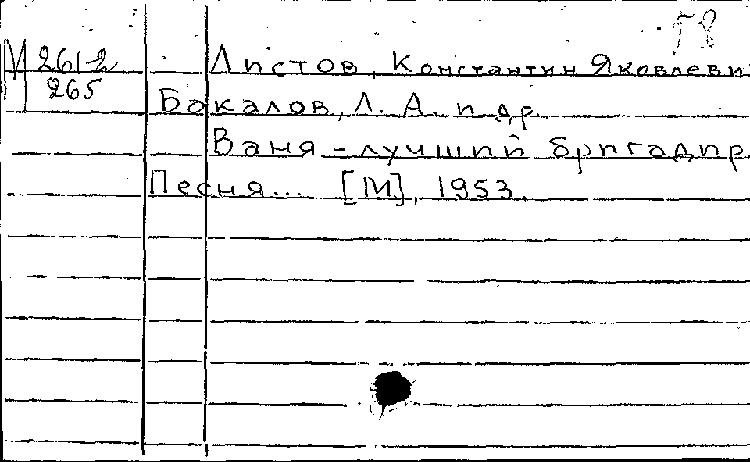 58
М 261-2
265
Листов, Константин Яковлеви
Бакалов, Л. А. и др.
Ваня - лучший бригадир.
Песня... [М], 1953.